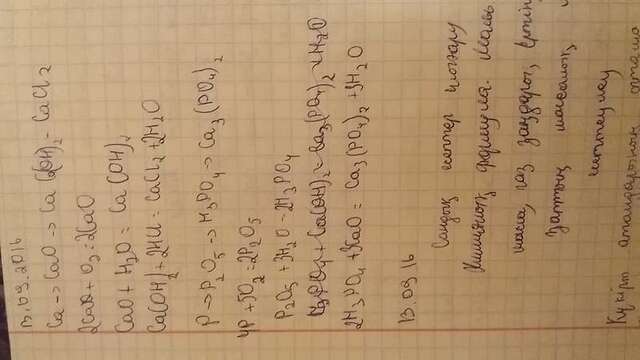 13.09.2016
Ca → CaO → Ca(OH)₂ - CaCl₂
2Ca + O₂ = 2CaO
CaO + H₂O = Ca(OH)₂
Ca(OH)₂ + 2HCl = CaCl₂ + 2H₂O
P → P₂O₅ → H₃PO₄ → Ca₃(PO₄)₂
4P + 5O₂ = 2P₂O₅
P₂O₅ + 3H₂O - 2H₃PO₄
H₃PO₄ + Ca(OH)₂ = Ca₃(PO₄)₂ + H₂O
2H₃PO₄ + 3CaO = Ca₃(PO₄)₂ + 3H₂O
13.09 16
Сандық есептер шығару
Химиялық формула.
масса, газ заңдары,
Заттың массалық
есептеу
Күкірт атомдарының орташа